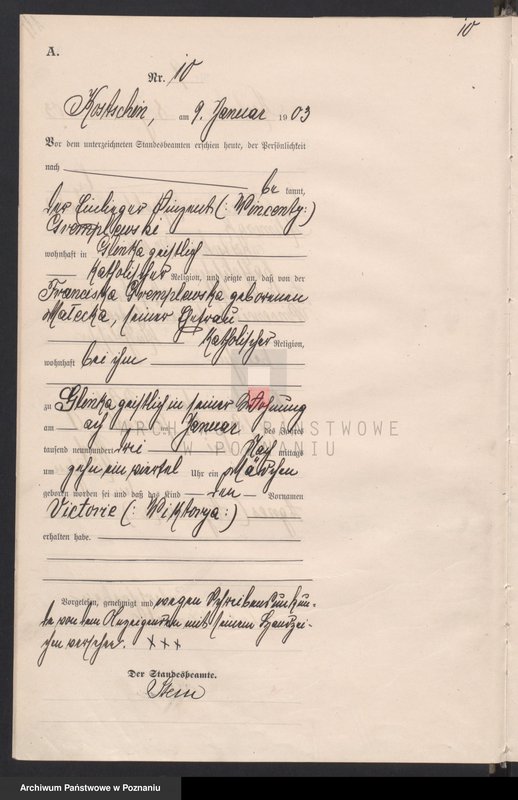 10
A.
Nr. 10
Kostschin, am 9. Januar 1903
Vor dem unterzeichneten Standesbeamten erschien heute, der Persönlichkeit
nach
be kannt,
der Einlieger Vinzent (: Wincenty:)
Gremplewski
wohnhaft in Glinka geistlich
katholischer Religion, und zeigte an, daß von der
Franciska Gremplewska geborenen
Malecka, seiner Ehefrau
katholischer Religion,
wohnhaft bei ihm
zu Glinka geistlich in seiner Wohnung
am acht Januar des Jahres
tausend neunhundert drei Nach mittags
um zehn ein viertel Uhr ein Mädchen
geboren worden sei und daß das Kind den Vornamen
Victorie (: Wiktorya:)
erhalten habe.
Vorgelesen, genehmigt und wegen Schreibensunkun-
de von dem Anzeigenden mit seinem Handzei-
chen versehen. xxx
Der Standesbeamte.
Stein
ARCHIWUM PAŃSTWOWE
W POZNANIU
Archiwum Państwowe w Poznaniu